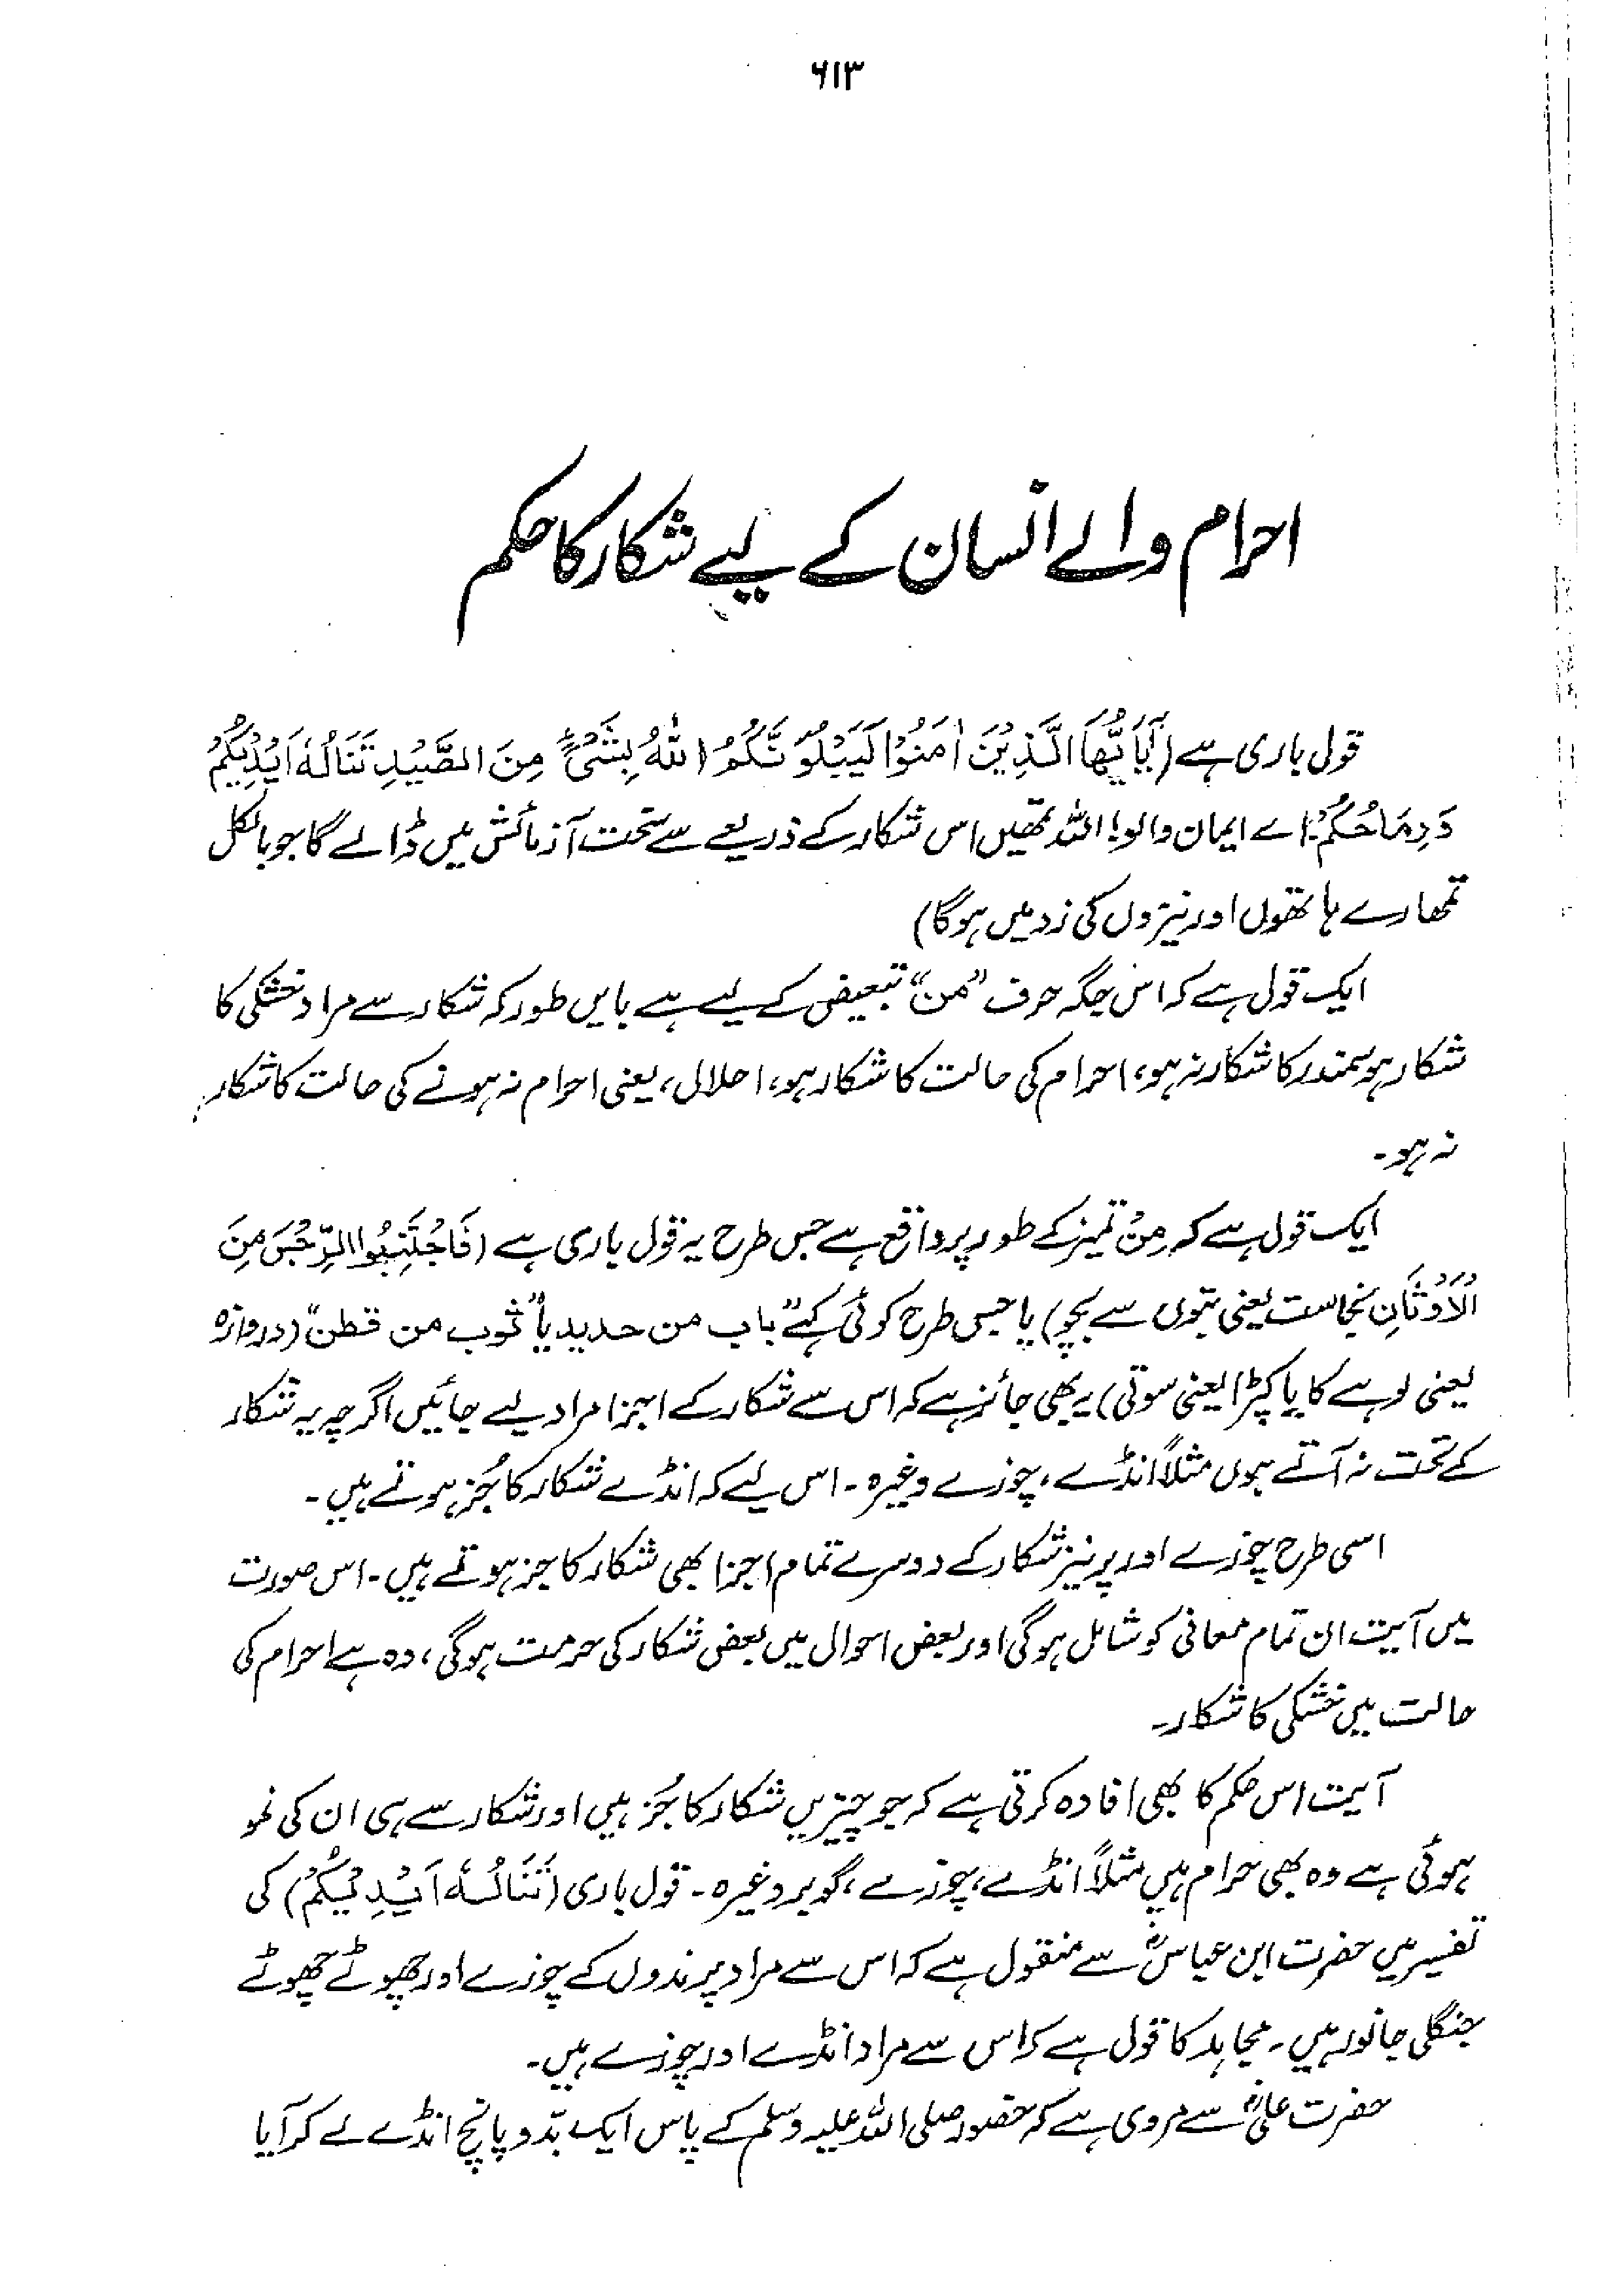 ۶۱۳
احرام والے انسان کے لیے شکار کا حکم
قول باری ہے (یَاَیُّھَا الَّذِیْنَ اٰمَنُوْا لَیَبْلُوَنَّکُمُ اللّٰہُ بِشَیْءٍ مِنَ الصَّیْدِ تَنَالُہٗ اَیْدِیْکُمْ
وَرِمَاحُکُمْ۔ اے ایمان والو! اللہ تمھیں اس شکار کے ذریعے سے سخت آزمائش میں ڈالے گا جو بالکل
تمھارے ہاتھوں اور نیزوں کی زد میں ہوگا)
ایک قول ہے کہ اس جگہ حرف "من" تبعیض کے لیے ہے بایں طور کہ شکار سے مراد خشکی کا
شکار ہو سمندر کا شکار نہ ہو، احرام کی حالت کا شکار ہو، احلال، یعنی احرام نہ ہونے کی حالت کا شکار
نہ ہو۔
ایک قول ہے کہ مِنْ تمیز کے طور پر واقع ہے جس طرح یہ قول باری ہے (فَاجْتَنِبُوا الرِّجْسَ مِنَ
الْاَوْثَانِ نجاست یعنی بتوں سے بچو) یا جس طرح کوئی کہے "باب من حدید" یا "ثوب من قطن" (دروازہ
یعنی لوہے کا یا کپڑا یعنی سوتی) یہ بھی جائز ہے کہ اس سے شکار کے اجزا مراد لیے جائیں اگرچہ یہ شکار
کے تحت نہ آتے ہوں مثلاً انڈے، چوزے وغیرہ۔ اس لیے کہ انڈے شکار کا جُز ہوتے ہیں۔
اسی طرح چوزے اور پر نیز شکار کے دوسرے تمام اجزا بھی شکار کا جز ہوتے ہیں۔ اس صورت
میں آیت ان تمام معانی کو شامل ہوگی اور بعض احوال میں بعض شکار کی حرمت ہوگی، وہ ہے احرام کی
حالت میں خشکی کا شکار۔
آیت اس حکم کا بھی افادہ کرتی ہے کہ جو چیزیں شکار کا جُز ہیں اور شکار سے ہی ان کی نمو
ہوئی ہے وہ بھی حرام ہیں مثلاً انڈے، چوزے، گوبر وغیرہ۔ قول باری (تَنَالُہٗ اَیْدِیْکُمْ) کی
تفسیر میں حضرت ابن عباسؓ سے منقول ہے کہ اس سے مراد پرندوں کے چوزے اور چھوٹے چھوٹے
جنگلی جانور ہیں۔ مجاہد کا قول ہے کہ اس سے مراد انڈے اور چوزے ہیں۔
حضرت علیؓ سے مروی ہے کہ حضور صلی اللہ علیہ وسلم کے پاس ایک بدّو پانچ انڈے لے کر آیا